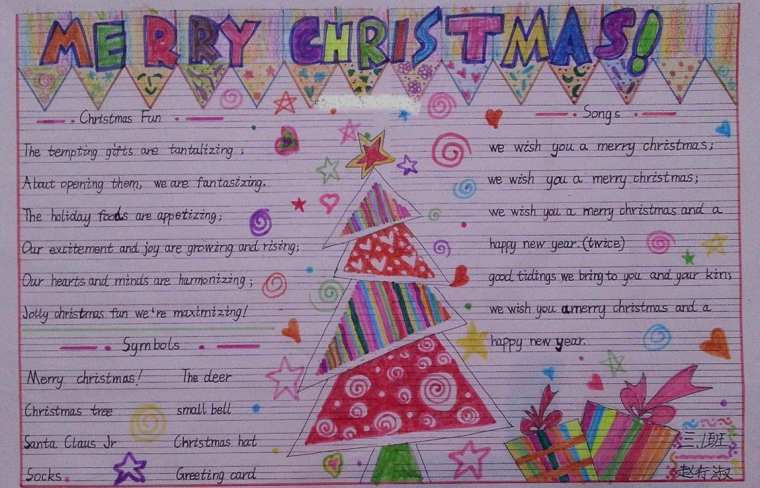 MERRY CHRISTMAS!
Christmas Fun
The tempting gifts are tantalizing;
About opening them, we are fantasizing.
The holiday foods are appetizing;
Our excitement and joy are growing and rising;
Our hearts and minds are harmonizing;
Jolly christmas fun we're maximizing!
Symbols
Merry christmas! The deer
Christmas tree small bell
Santa Claus Jr Christmas hat
Socks Greeting card
Songs
we wish you a merry christmas;
we wish you a merry christmas;
we wish you a merry christmas and a
happy new year.(twice)
good tidings we bring to you and your kin;
we wish you a merry christmas and a
happy new year.
三.1班
赵存淑